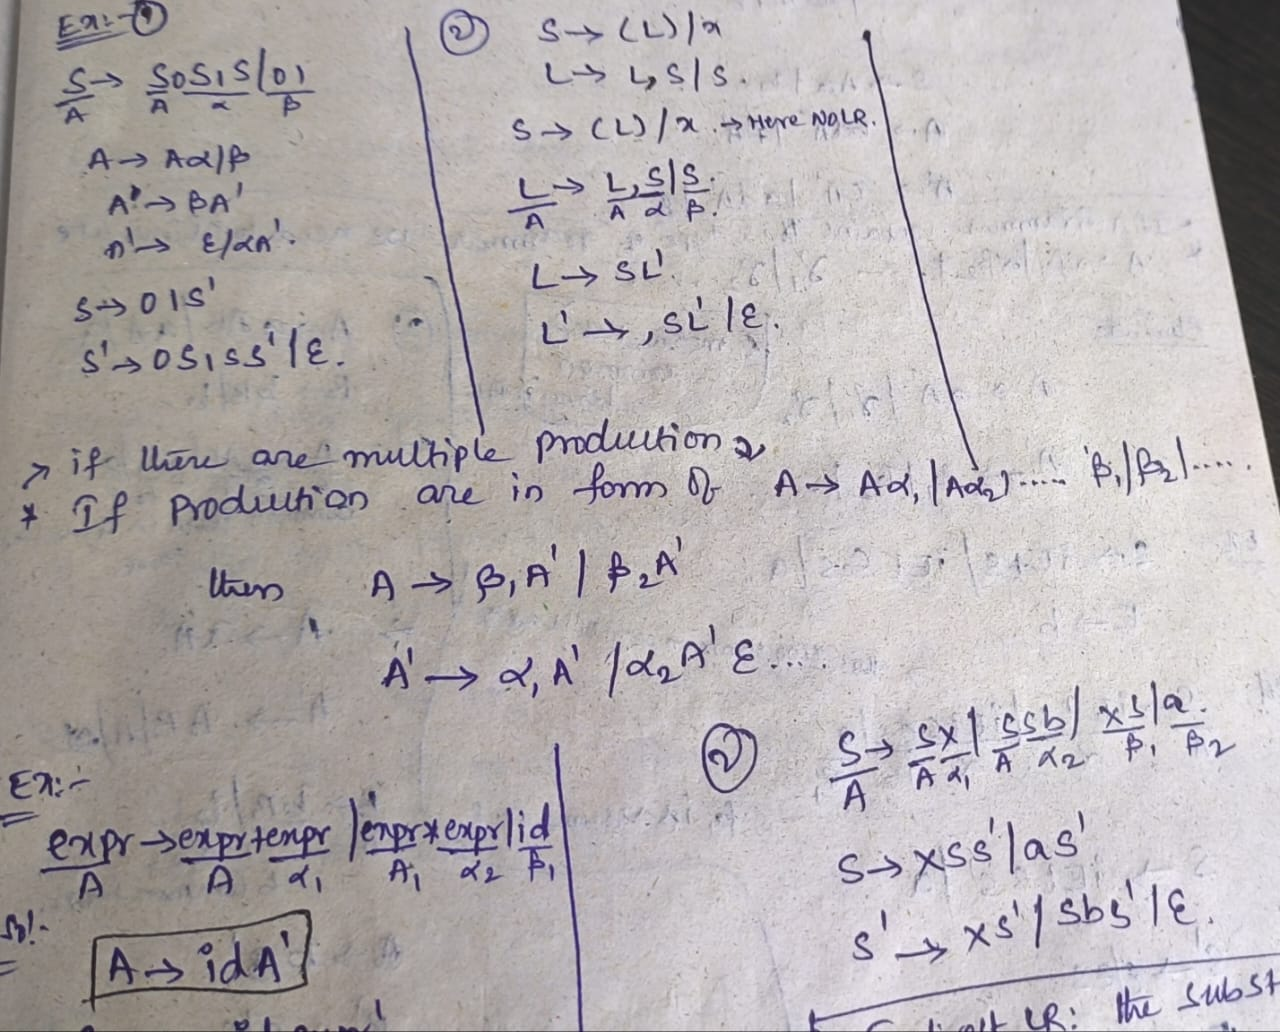 Ex:- ①
S → S0S1S/01
A A α β
A → Aα/β
A' → βA'
A' → ε/αA'.
S → 01S'
S' → 0S1SS'/ε.
② S → (L)/x
L → L,S/S.
S → (L)/x. → Here NO LR.
L → L,S/S.
A A α β.
L → SL'.
L' → ,SL'/ε.
→ if there are multiple production
* If Production are in form of A → Aα₁/Aα₂/..... β₁/β₂/.....
then A → β₁A' / β₂A'
A' → α₁A' /α₂A' ε....
Ex:-
expr → expr+expr /expr*expr/id
A A α₁ A₁ α₂ β₁
A → idA'
② S → Sx/ SSb/ xS/a.
A A α₁ A α₂ β₁ β₂
S → xSS'/aS'
S' → xS'/Sbs'/ε.
LR: the subst